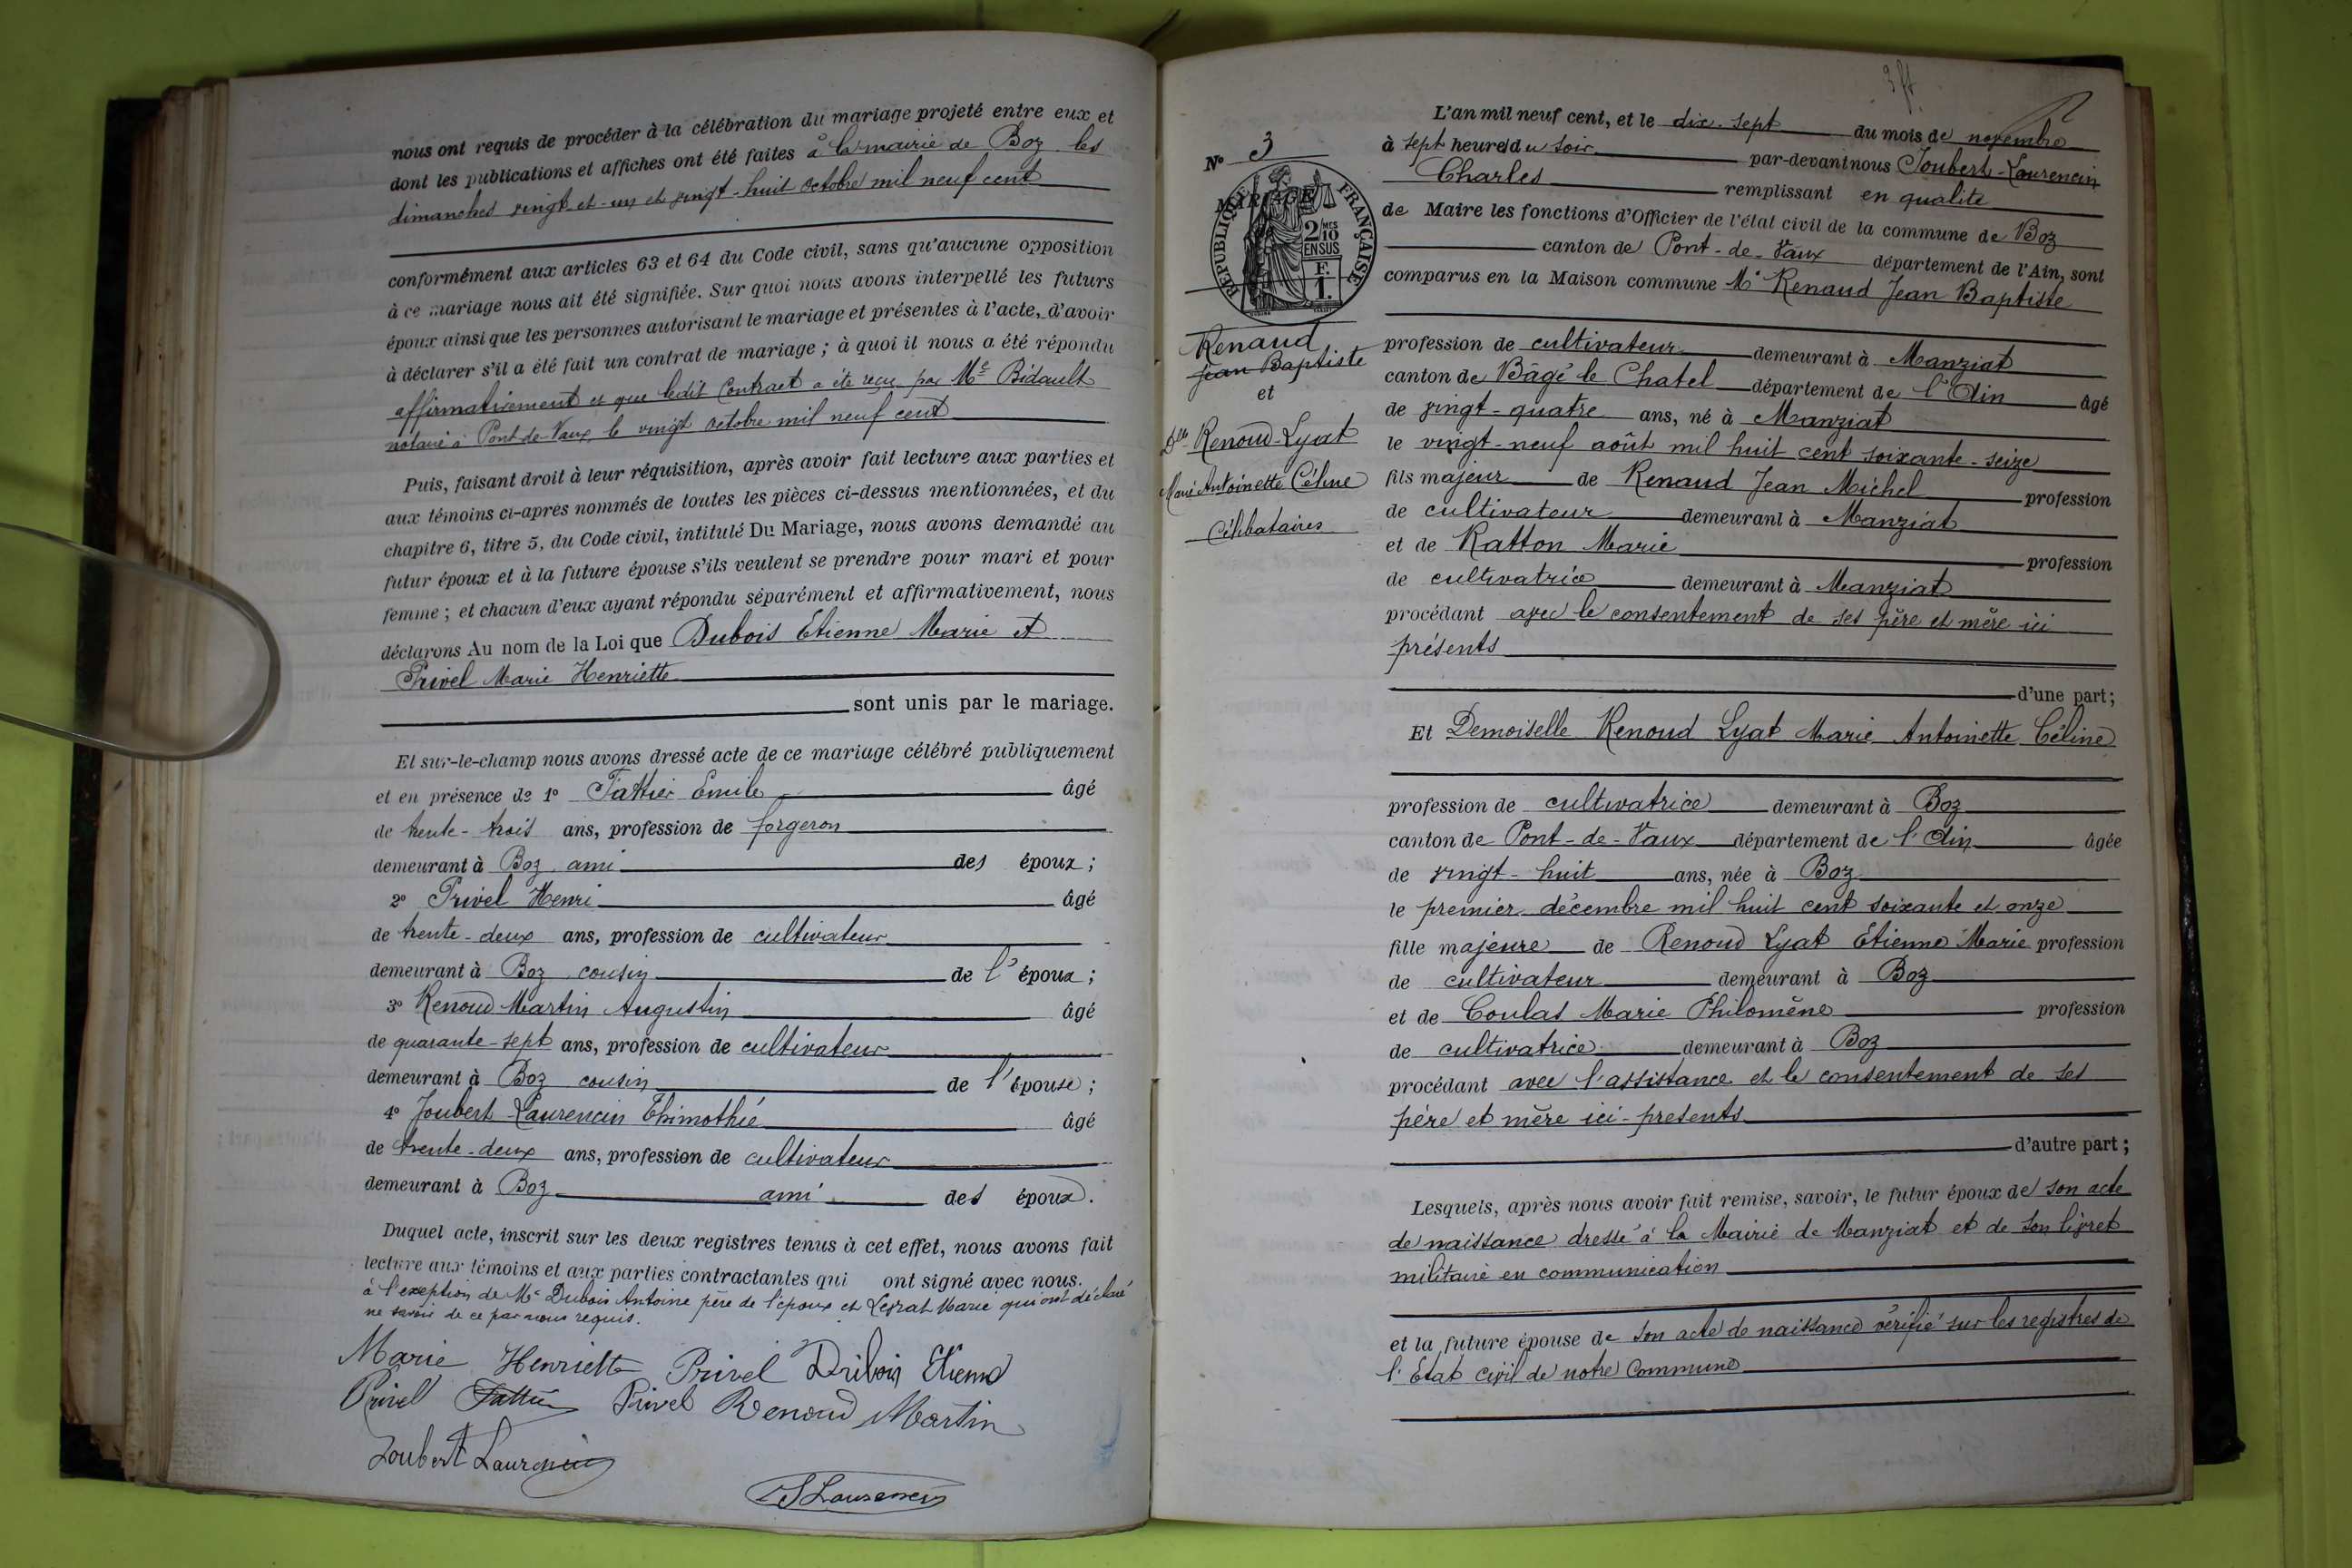 nous ont requis de procéder à la célébration du mariage projeté entre eux et
dont les publications et affiches ont été faites à la mairie de Boz les
dimanches vingt-et-un et vingt-huit octobre mil neuf cent
conformément aux articles 63 et 64 du Code civil, sans qu'aucune opposition
à ce mariage nous ait été signifiée. Sur quoi nous avons interpellé les futurs
époux ainsi que les personnes autorisant le mariage et présentes à l'acte, d'avoir
à déclarer s'il a été fait un contrat de mariage ; à quoi il nous a été répondu
affirmativement et que ledit Contract a été reçu par Me Bidault
notaire à Pont-de-Vaux, le vingt octobre mil neuf cent
Puis, faisant droit à leur réquisition, après avoir fait lecture aux parties et
aux témoins ci-après nommés de toutes les pièces ci-dessus mentionnées, et du
chapitre 6, titre 5, du Code civil, intitulé Du Mariage, nous avons demandé au
futur époux et à la future épouse s'ils veulent se prendre pour mari et pour
femme ; et chacun d'eux ayant répondu séparément et affirmativement, nous
déclarons Au nom de la Loi que Dubois Etienne Marie et
Privel Marie Henriette
sont unis par le mariage.
Et sur-le-champ nous avons dressé acte de ce mariage célébré publiquement
et en présence de 1° Tattier Emile âgé
de trente-trois ans, profession de forgeron
demeurant à Boz ami des époux ;
2° Privel Henri âgé
de trente-deux ans, profession de cultivateur
demeurant à Boz cousin de l'époux ;
3° Renoud Martin Augustin âgé
de quarante-sept ans, profession de cultivateur
demeurant à Boz cousin de l'épouse ;
4° Joubert-Laurencin Thimothée âgé
de trente-deux ans, profession de cultivateur
demeurant à Boz ami des époux.
Duquel acte, inscrit sur les deux registres tenus à cet effet, nous avons fait
lecture aux témoins et aux parties contractantes qui ont signé avec nous.
à l'exeption de Mr Dubois Antoine père de l'époux et Marie qui ont déclaré
ne savoir de ce par nous requis.
Marie Henriette Privel Dubois Etienne
Privel Tattier Privel Renoud Martin
Joubert Laurencin
Laurencin
3 ft
N° 3
MARIAGE
RÉPUBLIQUE FRANÇAISE
2/10 MES
EN SUS
F.
1.
Renaud
Jean Baptiste
et
Dlle Renoud-Lyat
Marie Antoinette Céline
Célibataires
L'an mil neuf cent, et le dix-sept du mois de novembre
à sept heures du soir par-devant nous Joubert-Laurencin
Charles remplissant en qualité
de Maire les fonctions d'Officier de l'état civil de la commune de Boz
canton de Pont-de-Vaux département de l'Ain, sont
comparus en la Maison commune Mr Renaud Jean Baptiste
profession de cultivateur demeurant à Manziat
canton de Bâgé le Chatel département de l'Ain âgé
de vingt-quatre ans, né à Manziat
le vingt-neuf août mil huit cent soixante-seize
fils majeur de Renaud Jean Michel profession
de cultivateur demeurant à Manziat
et de Ratton Marie profession
de cultivatrice demeurant à Manziat
procédant avec le consentement de ses père et mère ici
présents
d'une part ;
Et Demoiselle Renoud Lyat Marie Antoinette Céline
profession de cultivatrice demeurant à Boz
canton de Pont-de-Vaux département de l'Ain âgée
de vingt-huit ans, née à Boz
le premier décembre mil huit cent soixante et onze
fille majeure de Renoud Lyat Etienne Marie profession
de cultivateur demeurant à Boz
et de Coulas Marie Philomène profession
de cultivatrice demeurant à Boz
procédant avec l'assistance et le consentement de ses
père et mère ici-présents
d'autre part ;
Lesquels, après nous avoir fait remise, savoir, le futur époux de son acte
de naissance dressé à la Mairie de Manziat et de son livret
militaire en communication
et la future épouse de son acte de naissance vérifié sur les registres de
l'Etat civil de notre commune